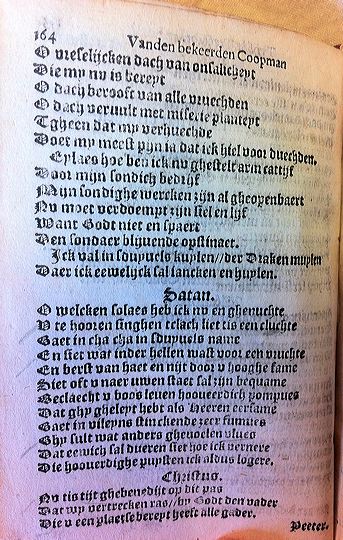 164 Vanden bekeerden Coopman
O vreselijcken dach van onsalicheyt
Die my nv is bereyt
O dach berooft van alle vruechden
O dach vervult met miserie planteyt
Tgheen dat my verhuechde
Doet my meest pyn ja dat ick hiel voor duechden.
Eylaes hoe ben ick nv ghestelt arm catijf
Door mijn sondich bedrijf
Mijn sondighe wercken zijn al gheopenbaert
Nv moet verdoempt zijn siel en lijf
Want Godt niet en spaert
Den sondaer blijvende opstinaet.
Ick val in sduyvels kuylen//der Draken muylen
Daer ick eewelijck sal iancken en huylen.
Satan.
O welcken solaes heb ick nv en ghenuchte
V te hooren singhen tclach liet tis een cluchte
Gaet in cha cha in sduyvels name
En siet wat inder hellen wast voor een vruchte
En berst van haet en nijt door v hooghe fame
Siet oft v naer uwen staet sal zijn bequame
Beclaecht v boos leven hooveerdich pompeus
Dat ghy gheleyt hebt als Heeren eersame
Gaet in vileyns stinckende zeer fumeus
Ghy sult wat anders ghevoelen
Dat eewich sal dueren siet hoe ick
Die hooverdighe puysten ick aldus logere.
Christus.
Nv tis tijt ghebenedijt op dit pas
Dat wy vertrecken ras//by Godt den vader
Die v een plaetse bereyt heeft alle gader.
Peeter.